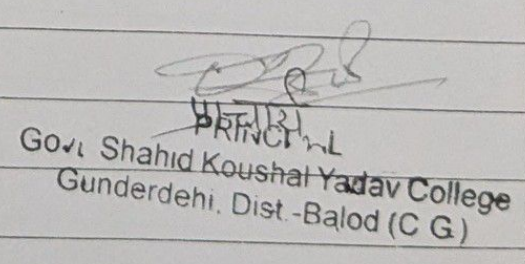 PRINCIPAL
Govt Shahid Koushal Yadav College
Gunderdehi. Dist.-Balod (C G)